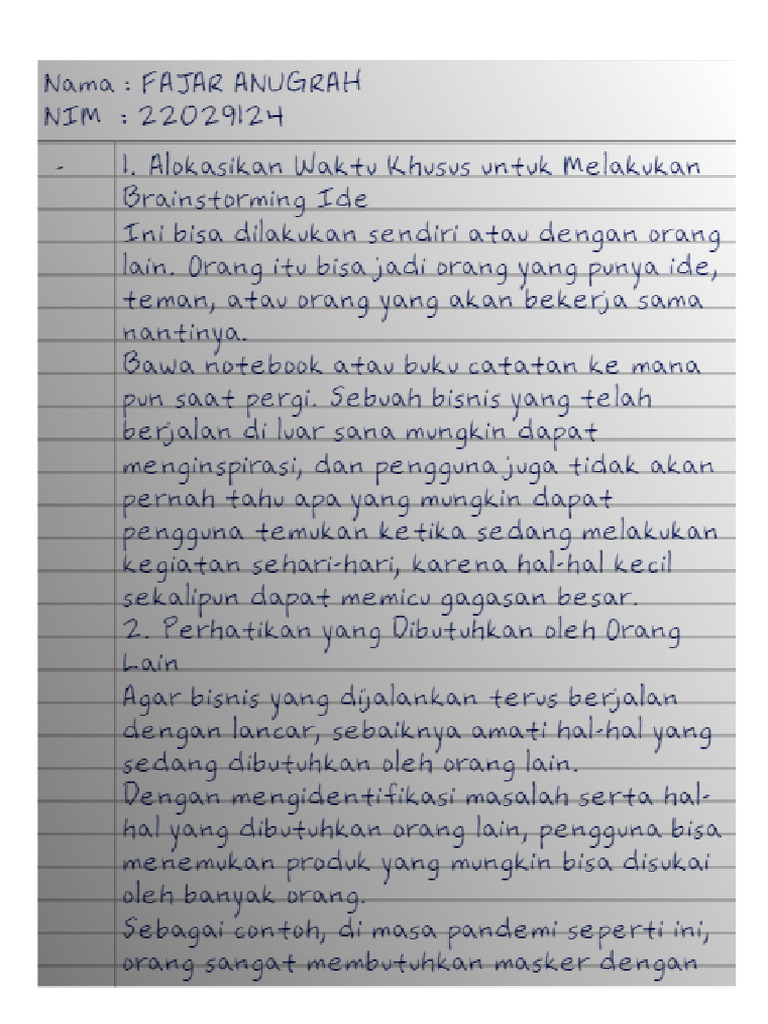 Nama : FAJAR ANUGRAH
NIM : 22029124
- 1. Alokasikan Waktu Khusus untuk Melakukan
Brainstorming Ide
Ini bisa dilakukan sendiri atau dengan orang
lain. Orang itu bisa jadi orang yang punya ide,
teman, atau orang yang akan bekerja sama
nantinya.
Bawa notebook atau buku catatan ke mana
pun saat pergi. Sebuah bisnis yang telah
berjalan di luar sana mungkin dapat
menginspirasi, dan pengguna juga tidak akan
pernah tahu apa yang mungkin dapat
pengguna temukan ketika sedang melakukan
kegiatan sehari-hari, karena hal-hal kecil
sekalipun dapat memicu gagasan besar.
2. Perhatikan yang Dibutuhkan oleh Orang
Lain
Agar bisnis yang dijalankan terus berjalan
dengan lancar, sebaiknya amati hal-hal yang
sedang dibutuhkan oleh orang lain.
Dengan mengidentifikasi masalah serta hal-
hal yang dibutuhkan orang lain, pengguna bisa
menemukan produk yang mungkin bisa disukai
oleh banyak orang.
Sebagai contoh, di masa pandemi seperti ini,
orang sangat membutuhkan masker dengan